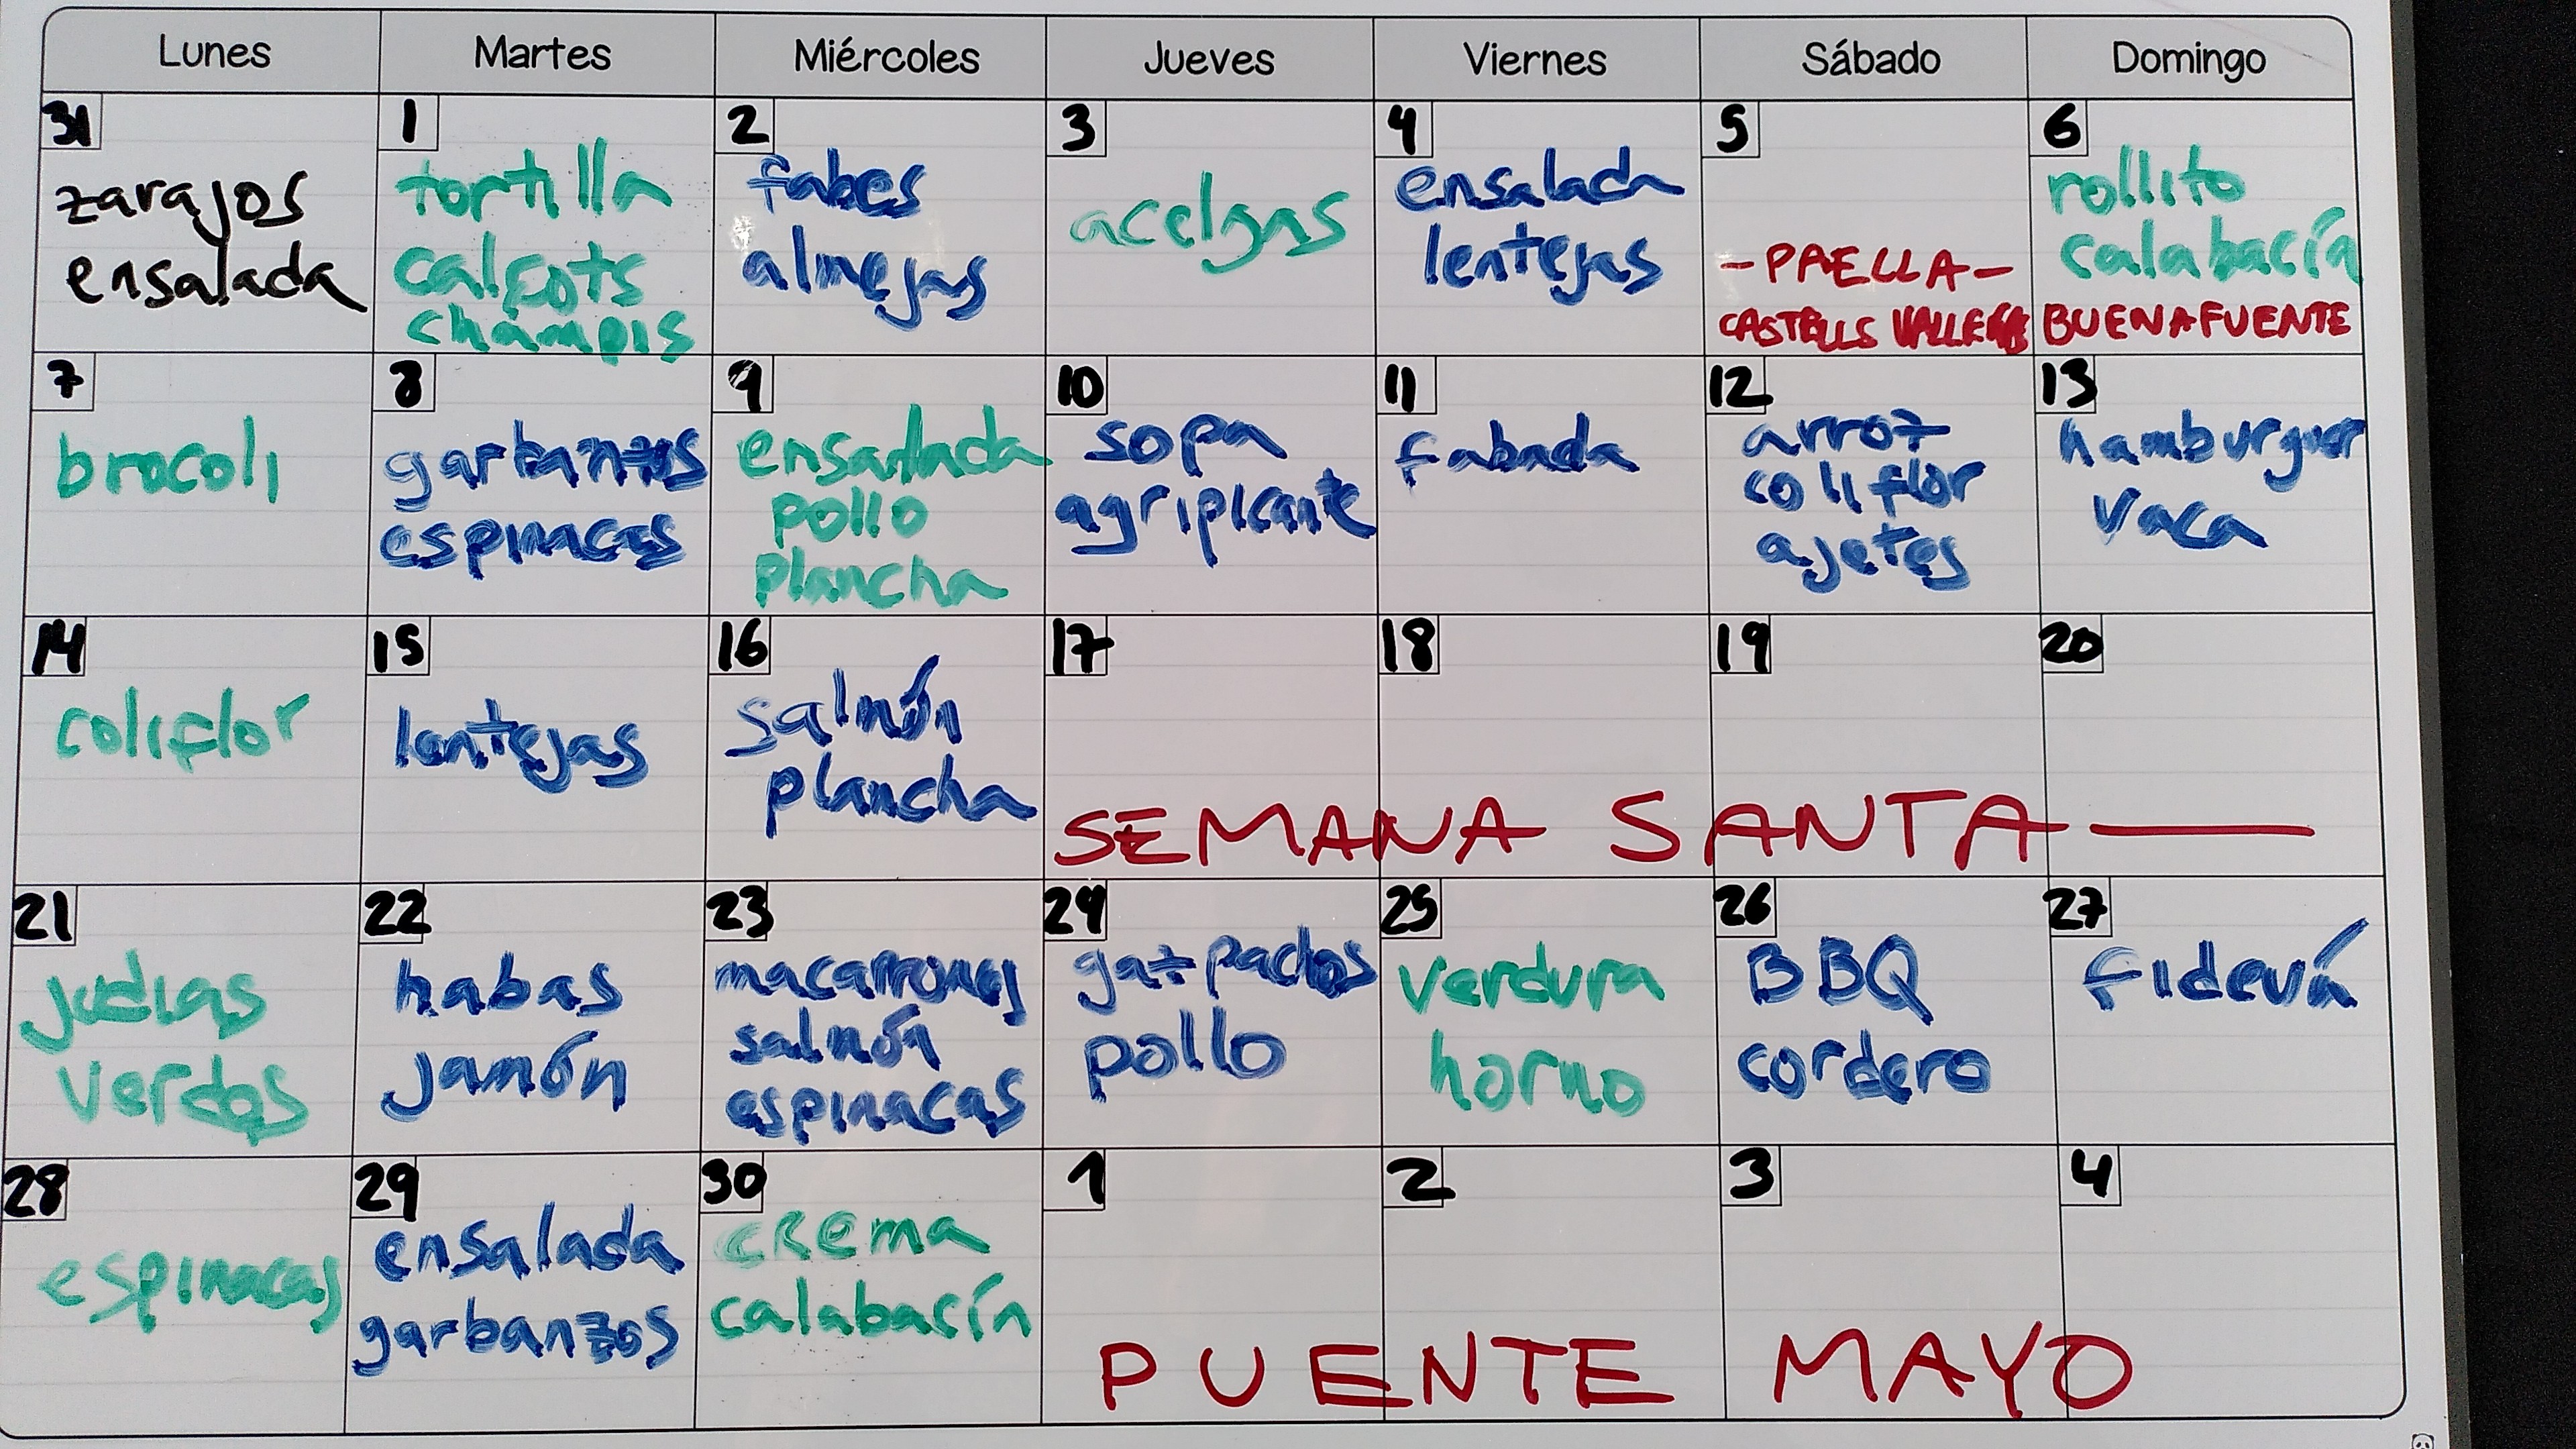 Lunes Martes Miércoles Jueves Viernes Sábado Domingo
31
zarajos
ensalada
1
tortilla
calçots
champis
2
fabes
almejas
3
acelgas
4
ensalada
lentejas
5
-PAELLA-
CASTELLS
6
rollito
calabacín
BUENAFUENTE
7
brocoli
8
garbanzos
espinacas
9
ensalada
pollo
plancha
10
sopa
agripicante
11
fabada
12
arroz
coliflor
ajetes
13
hamburguer
vaca
14
coliflor
15
lentejas
16
salmón
plancha
17
18
19
20
SEMANA SANTA —
21
judias
verdes
22
habas
jamón
23
macarrones
salmón
espinacas
24
gazpachos
pollo
25
verdura
horno
26
BBQ
cordero
27
fideuá
28
espinacas
29
ensalada
garbanzos
30
crema
calabacín
1
2
3
4
PUENTE MAYO